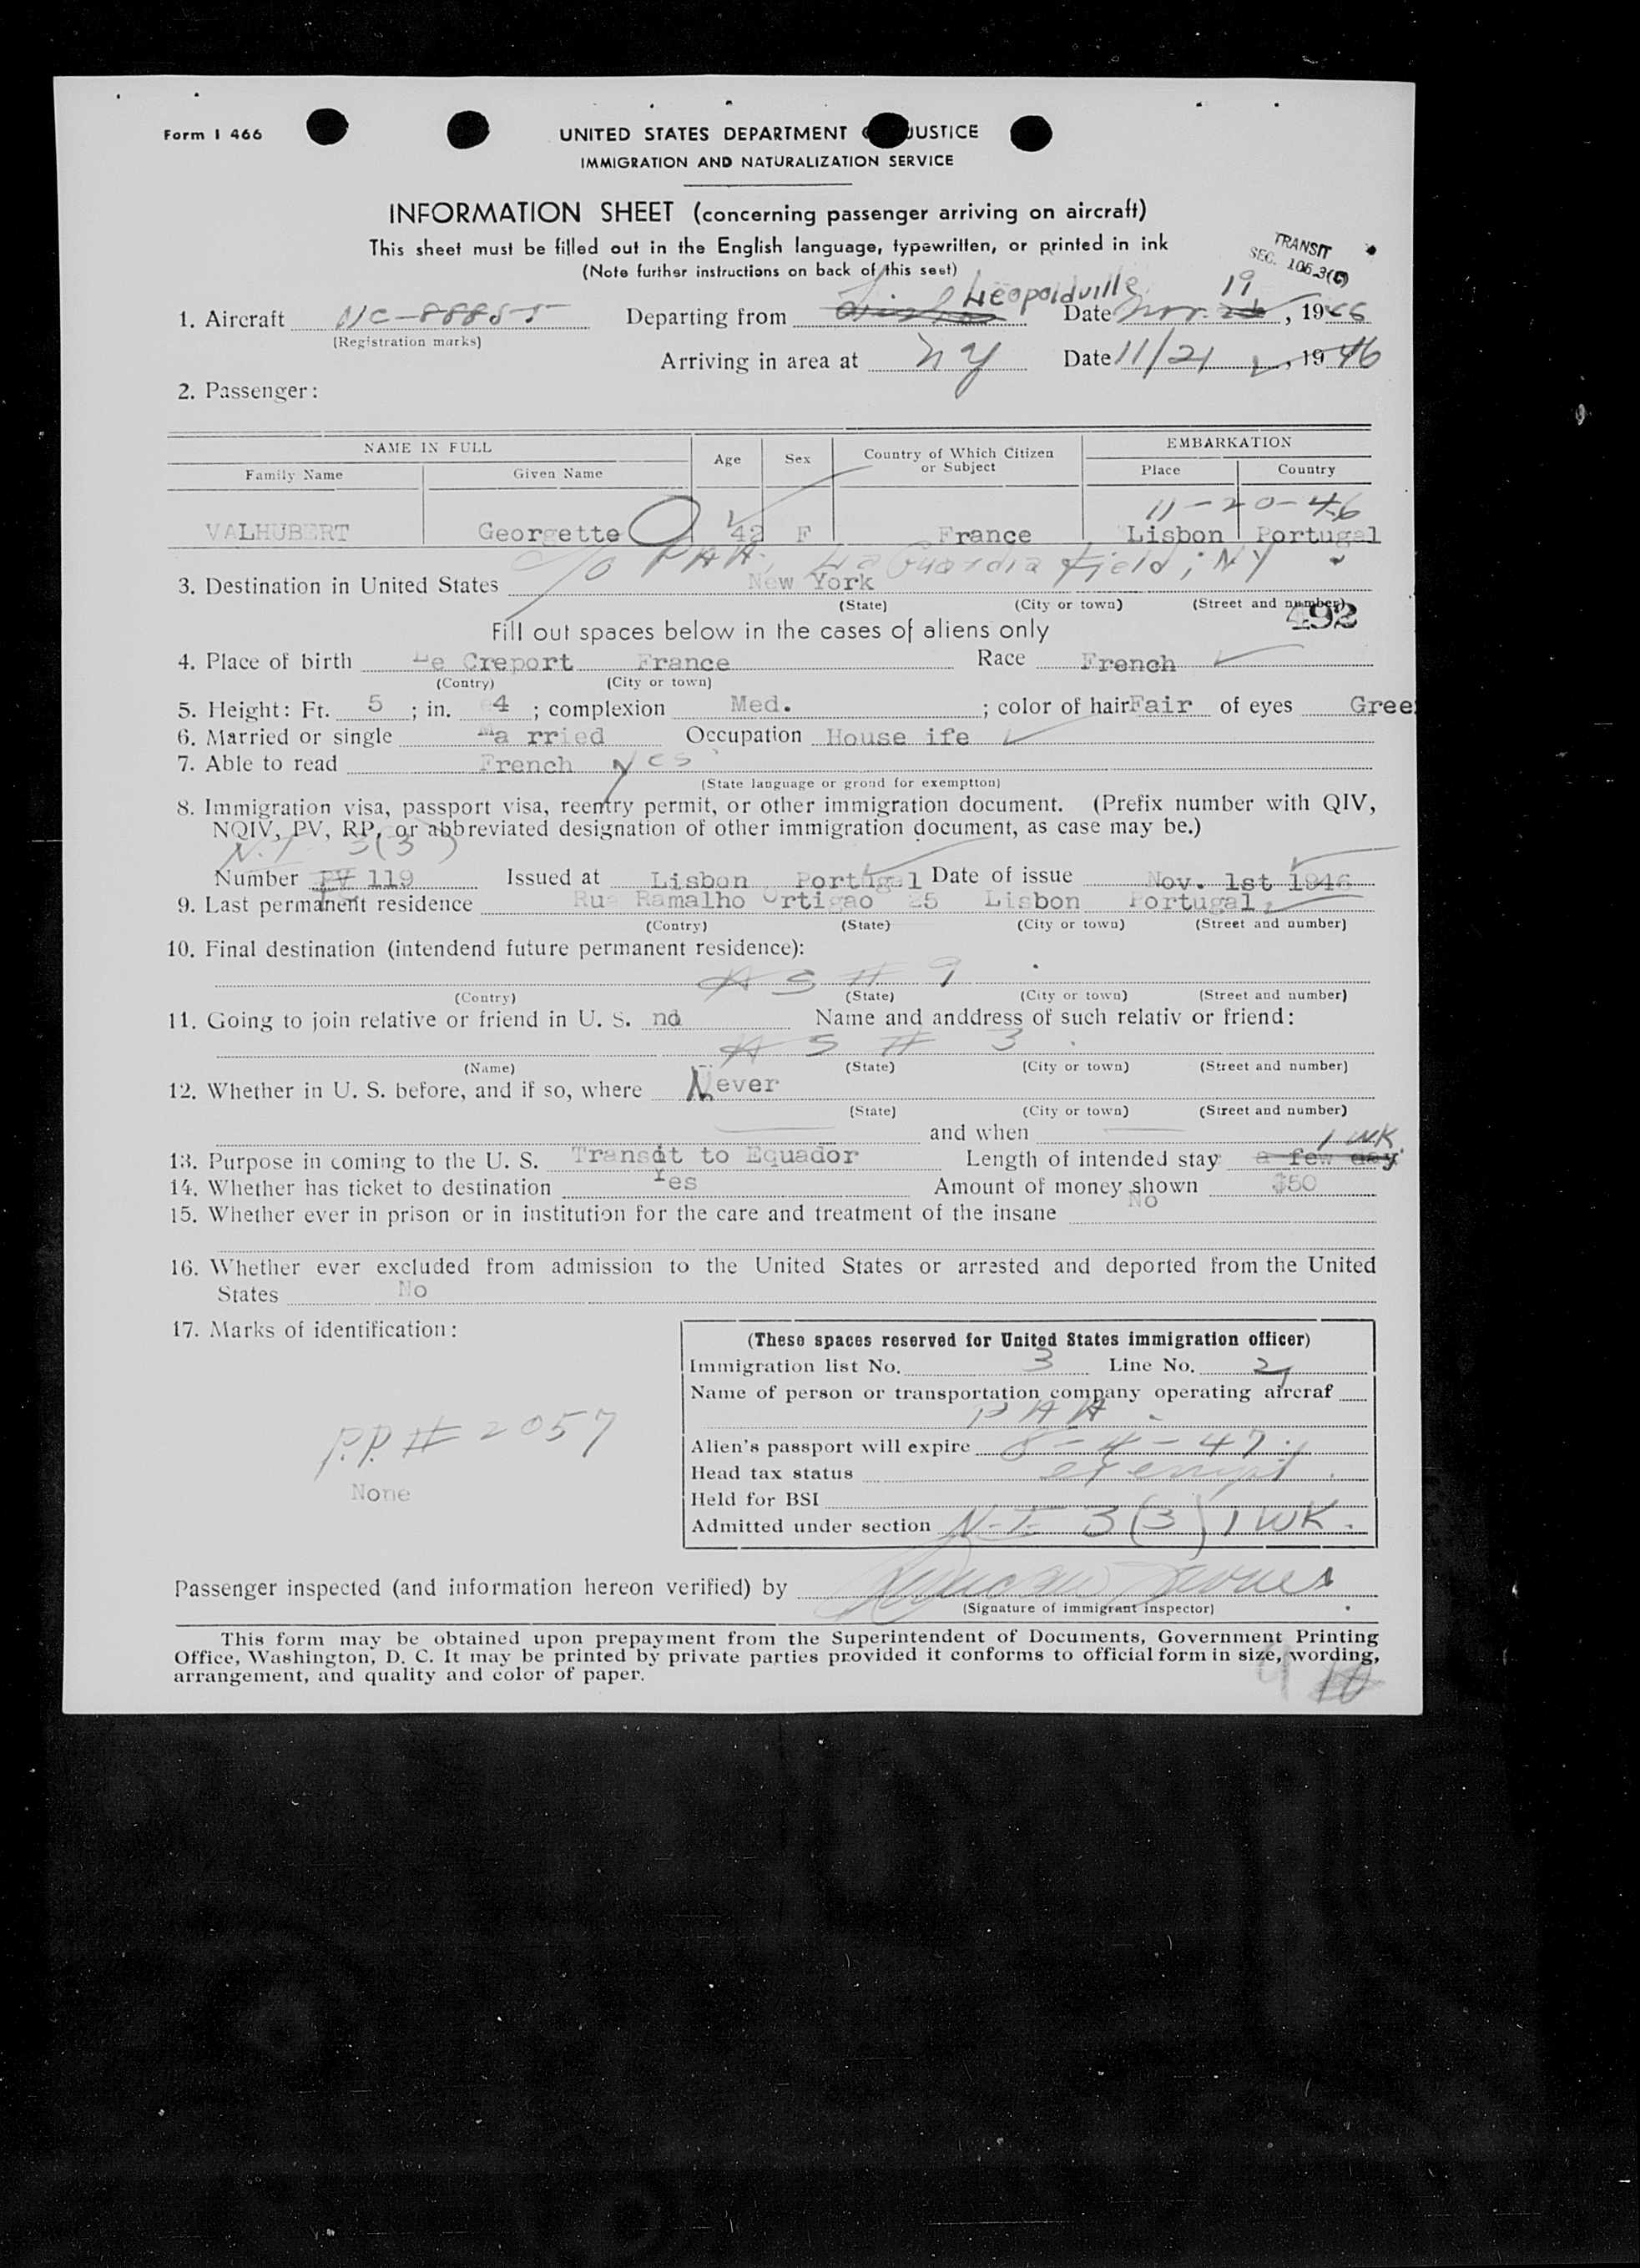 Form I 466
UNITED STATES DEPARTMENT JUSTICE
IMMIGRATION AND NATURALIZATION SERVICE
INFORMATION SHEET (concerning passenger arriving on aircraft)
This sheet must be filled out in the English language, typewritten, or printed in ink
(Note further instructions on back of this seet)
TRANSIT
SEC. 106.3(C)
1. Aircraft NC-88855 Departing from Leopoldville Date Nov. 19, 1946
(Registration marks)
Arriving in area at NY Date 11/21, 1946
2. Passenger:
NAME IN FULL Age Sex Country of Which Citizen or Subject EMBARKATION
Family Name Given Name Place Country
11-20-46
VALHUBERT Georgette 42 F France Lisbon Portugal
c/o PAA, La Guardia Field; NY
3. Destination in United States New York
(State) (City or town) (Street and number)
492
Fill out spaces below in the cases of aliens only
4. Place of birth Le Creport France Race French
(Contry) (City or town)
5. Height: Ft. 5 ; in. 4 ; complexion Med. ; color of hair Fair of eyes Gree
6. Married or single Ma rried Occupation House ife
7. Able to read French yes
(State language or grond for exemptton)
8. Immigration visa, passport visa, reentry permit, or other immigration document. (Prefix number with QIV,
NQIV, PV, RP, or abbreviated designation of other immigration document, as case may be.)
N.I 3(3)
Number PV 119 Issued at Lisbon Portugal Date of issue Nov. 1st 1946
9. Last permanent residence Rua Ramalho Ortigao 25 Lisbon Portugal
(Contry) (State) (City or town) (Street and number)
10. Final destination (intendend future permanent residence):
AS # 9
(Contry) (State) (City or town) (Street and number)
11. Going to join relative or friend in U. S. no Name and anddress of such relativ or friend:
AS # 3
(Name) (State) (City or town) (Street and number)
12. Whether in U. S. before, and if so, where Never
(State) (City or town) (Street and number)
and when
1 WK
13. Purpose in coming to the U. S. Transit to Equador Length of intended stay a few day
14. Whether has ticket to destination Yes Amount of money shown $50
15. Whether ever in prison or in institution for the care and treatment of the insane No
16. Whether ever excluded from admission to the United States or arrested and deported from the United
States No
17. Marks of identification:
P.P. # 2057
None
(These spaces reserved for United States immigration officer)
Immigration list No. 3 Line No. 2
Name of person or transportation company operating aircraf
PAA
Alien's passport will expire 8-4-47
Head tax status exempt
Held for BSI
Admitted under section N-I 3(3) 1 WK.
Passenger inspected (and information hereon verified) by
(Signature of immigrant inspector)
This form may be obtained upon prepayment from the Superintendent of Documents, Government Printing
Office, Washington, D. C. It may be printed by private parties provided it conforms to official form in size, wording,
arrangement, and quality and color of paper.